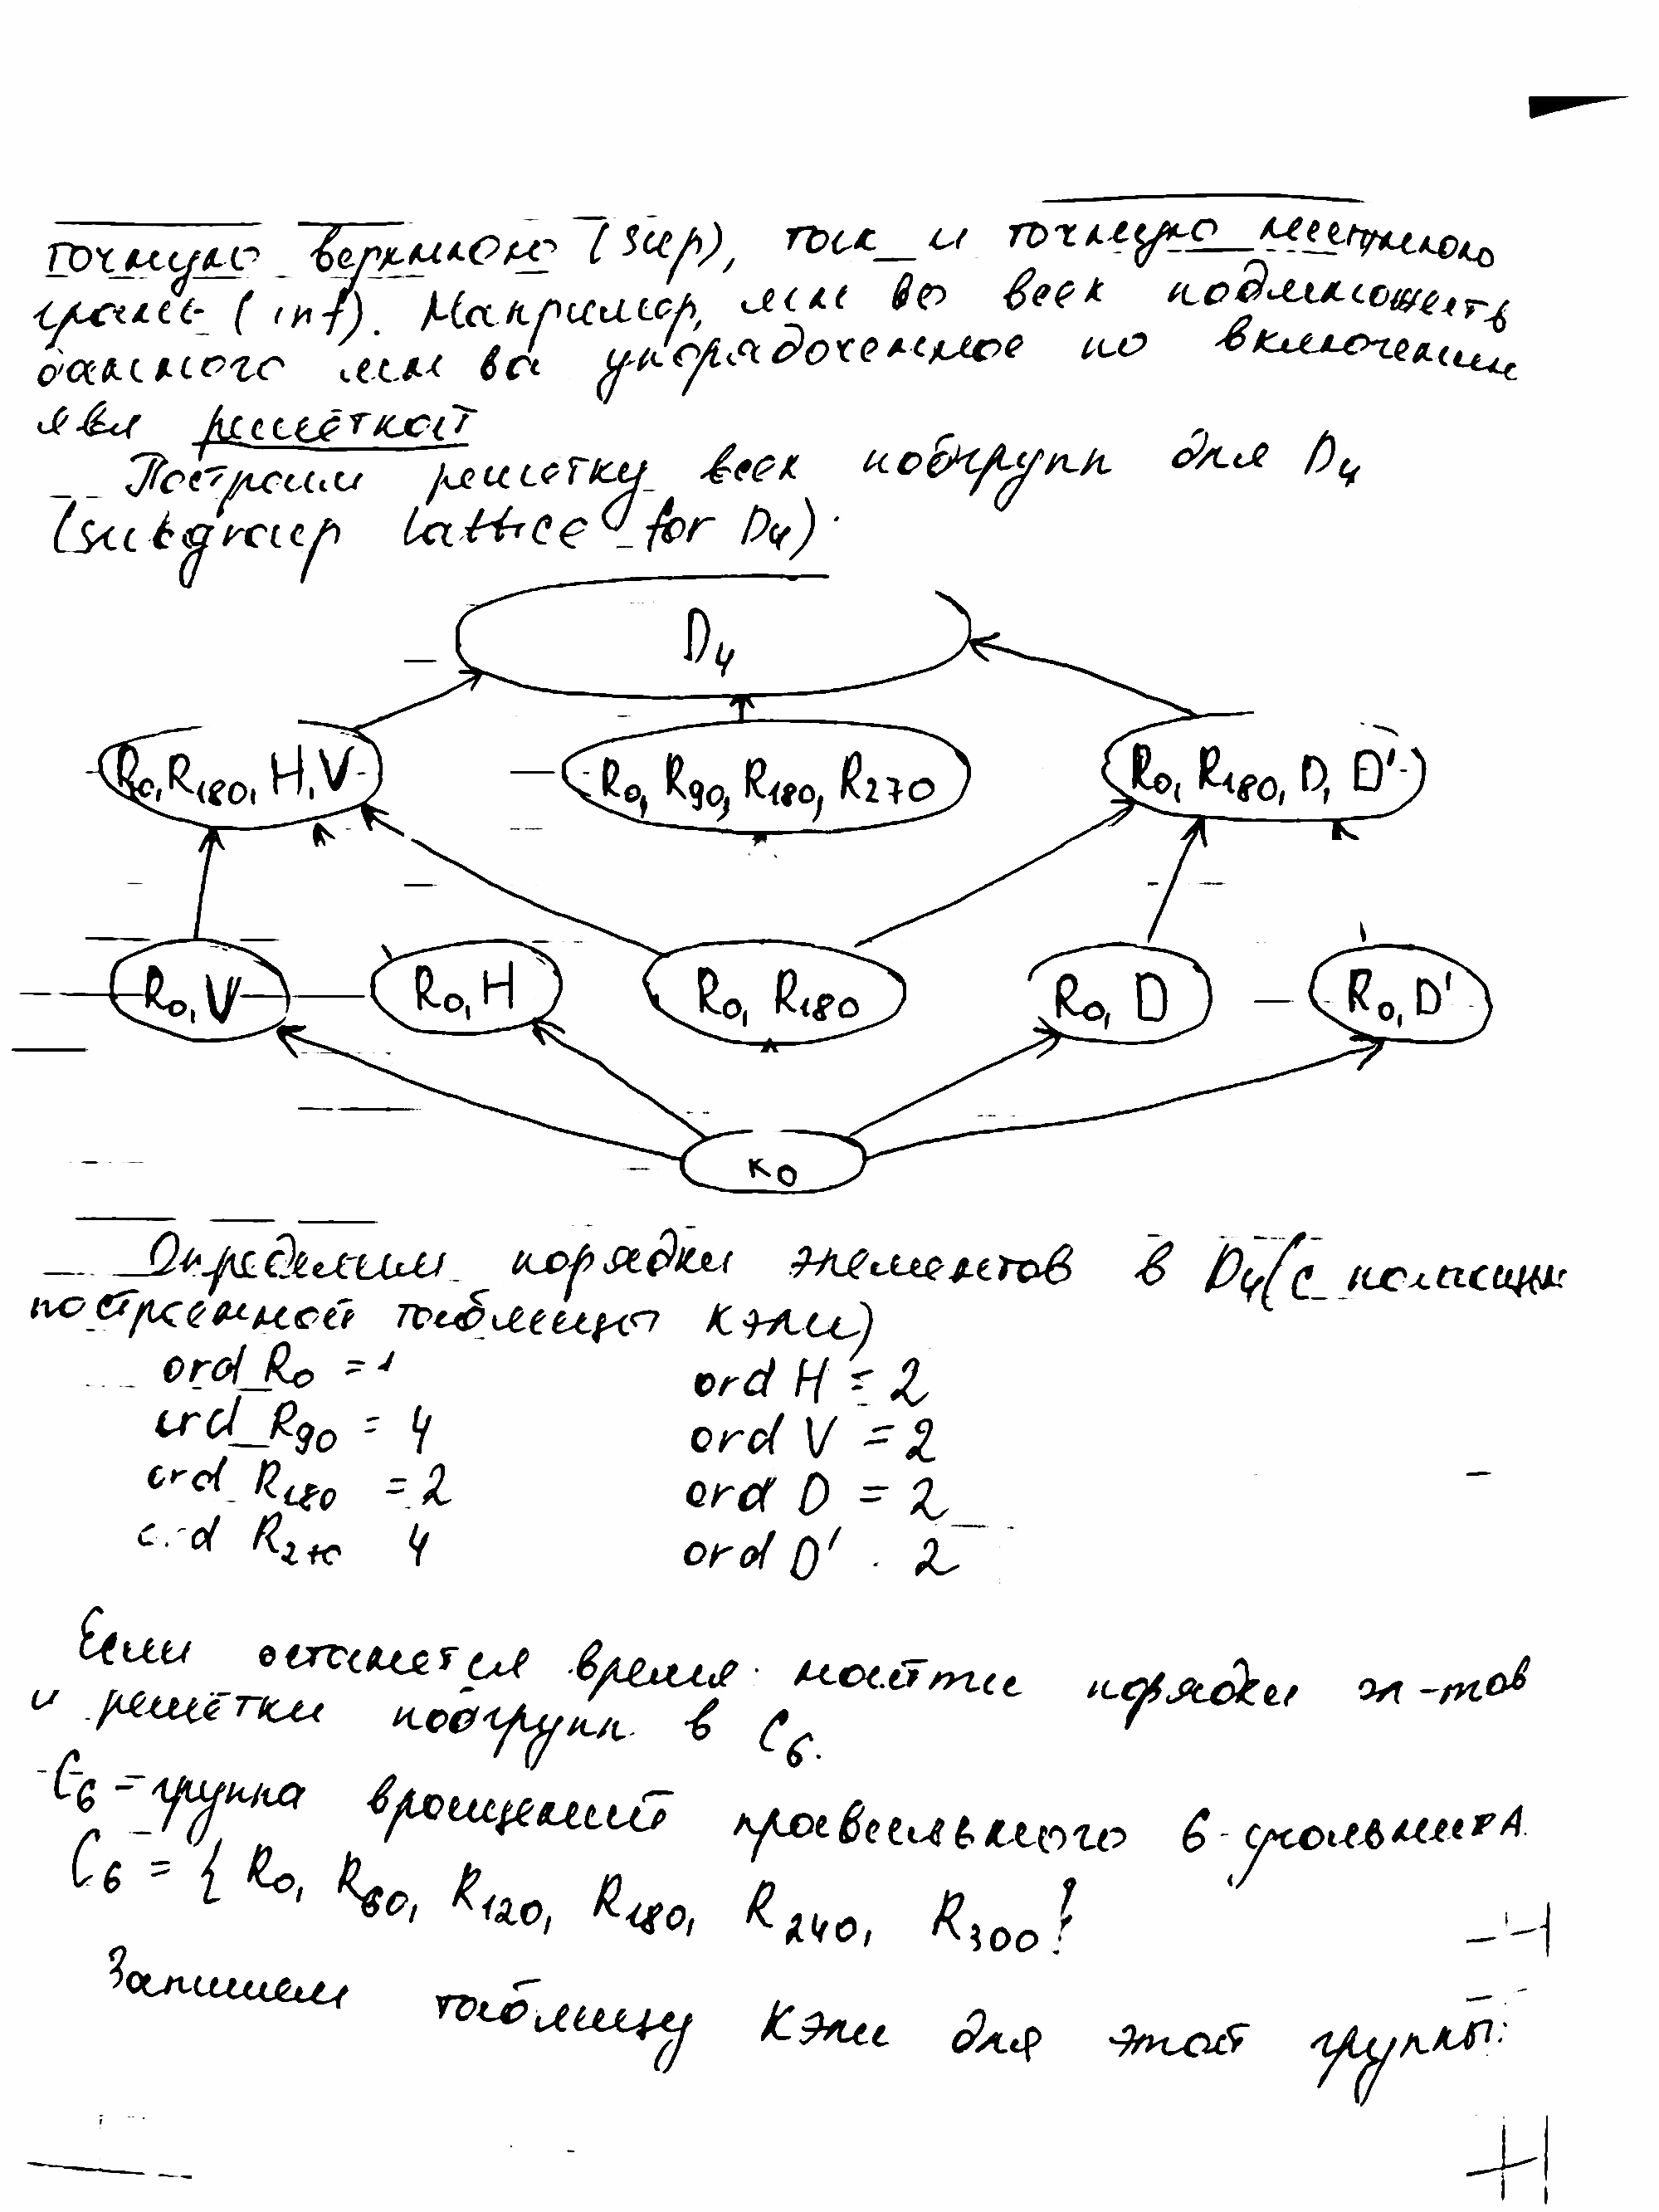 точную верхнюю (sup), так и точную нижнюю
грань (inf). Например, мн во всех подмножеств
данного мн ва упорядоченное по включению
явл решёткой
Построим решетку всех подгрупп для D₄
(subgroup lattice for D₄).
D₄
R₀, R₁₈₀, H, V
R₀, R₉₀, R₁₈₀, R₂₇₀
R₀, R₁₈₀, D, D'
R₀, V
R₀, H
R₀, R₁₈₀
R₀, D
R₀, D'
R₀
Определим порядки элементов в D₄ (с помощью
построенной таблицы Кэли)
ord R₀ = 1 ord H = 2
ord R₉₀ = 4 ord V = 2
ord R₁₈₀ = 2 ord D = 2
ord R₂₇₀ 4 ord D' 2
Если останется время: найти порядки эл-тов
и решётки подгрупп в C₆.
C₆ = группа вращений правильного 6-угольника
C₆ = { R₀, R₆₀, R₁₂₀, R₁₈₀, R₂₄₀, R₃₀₀ }
Запишем таблицу Кэли для этой группы: